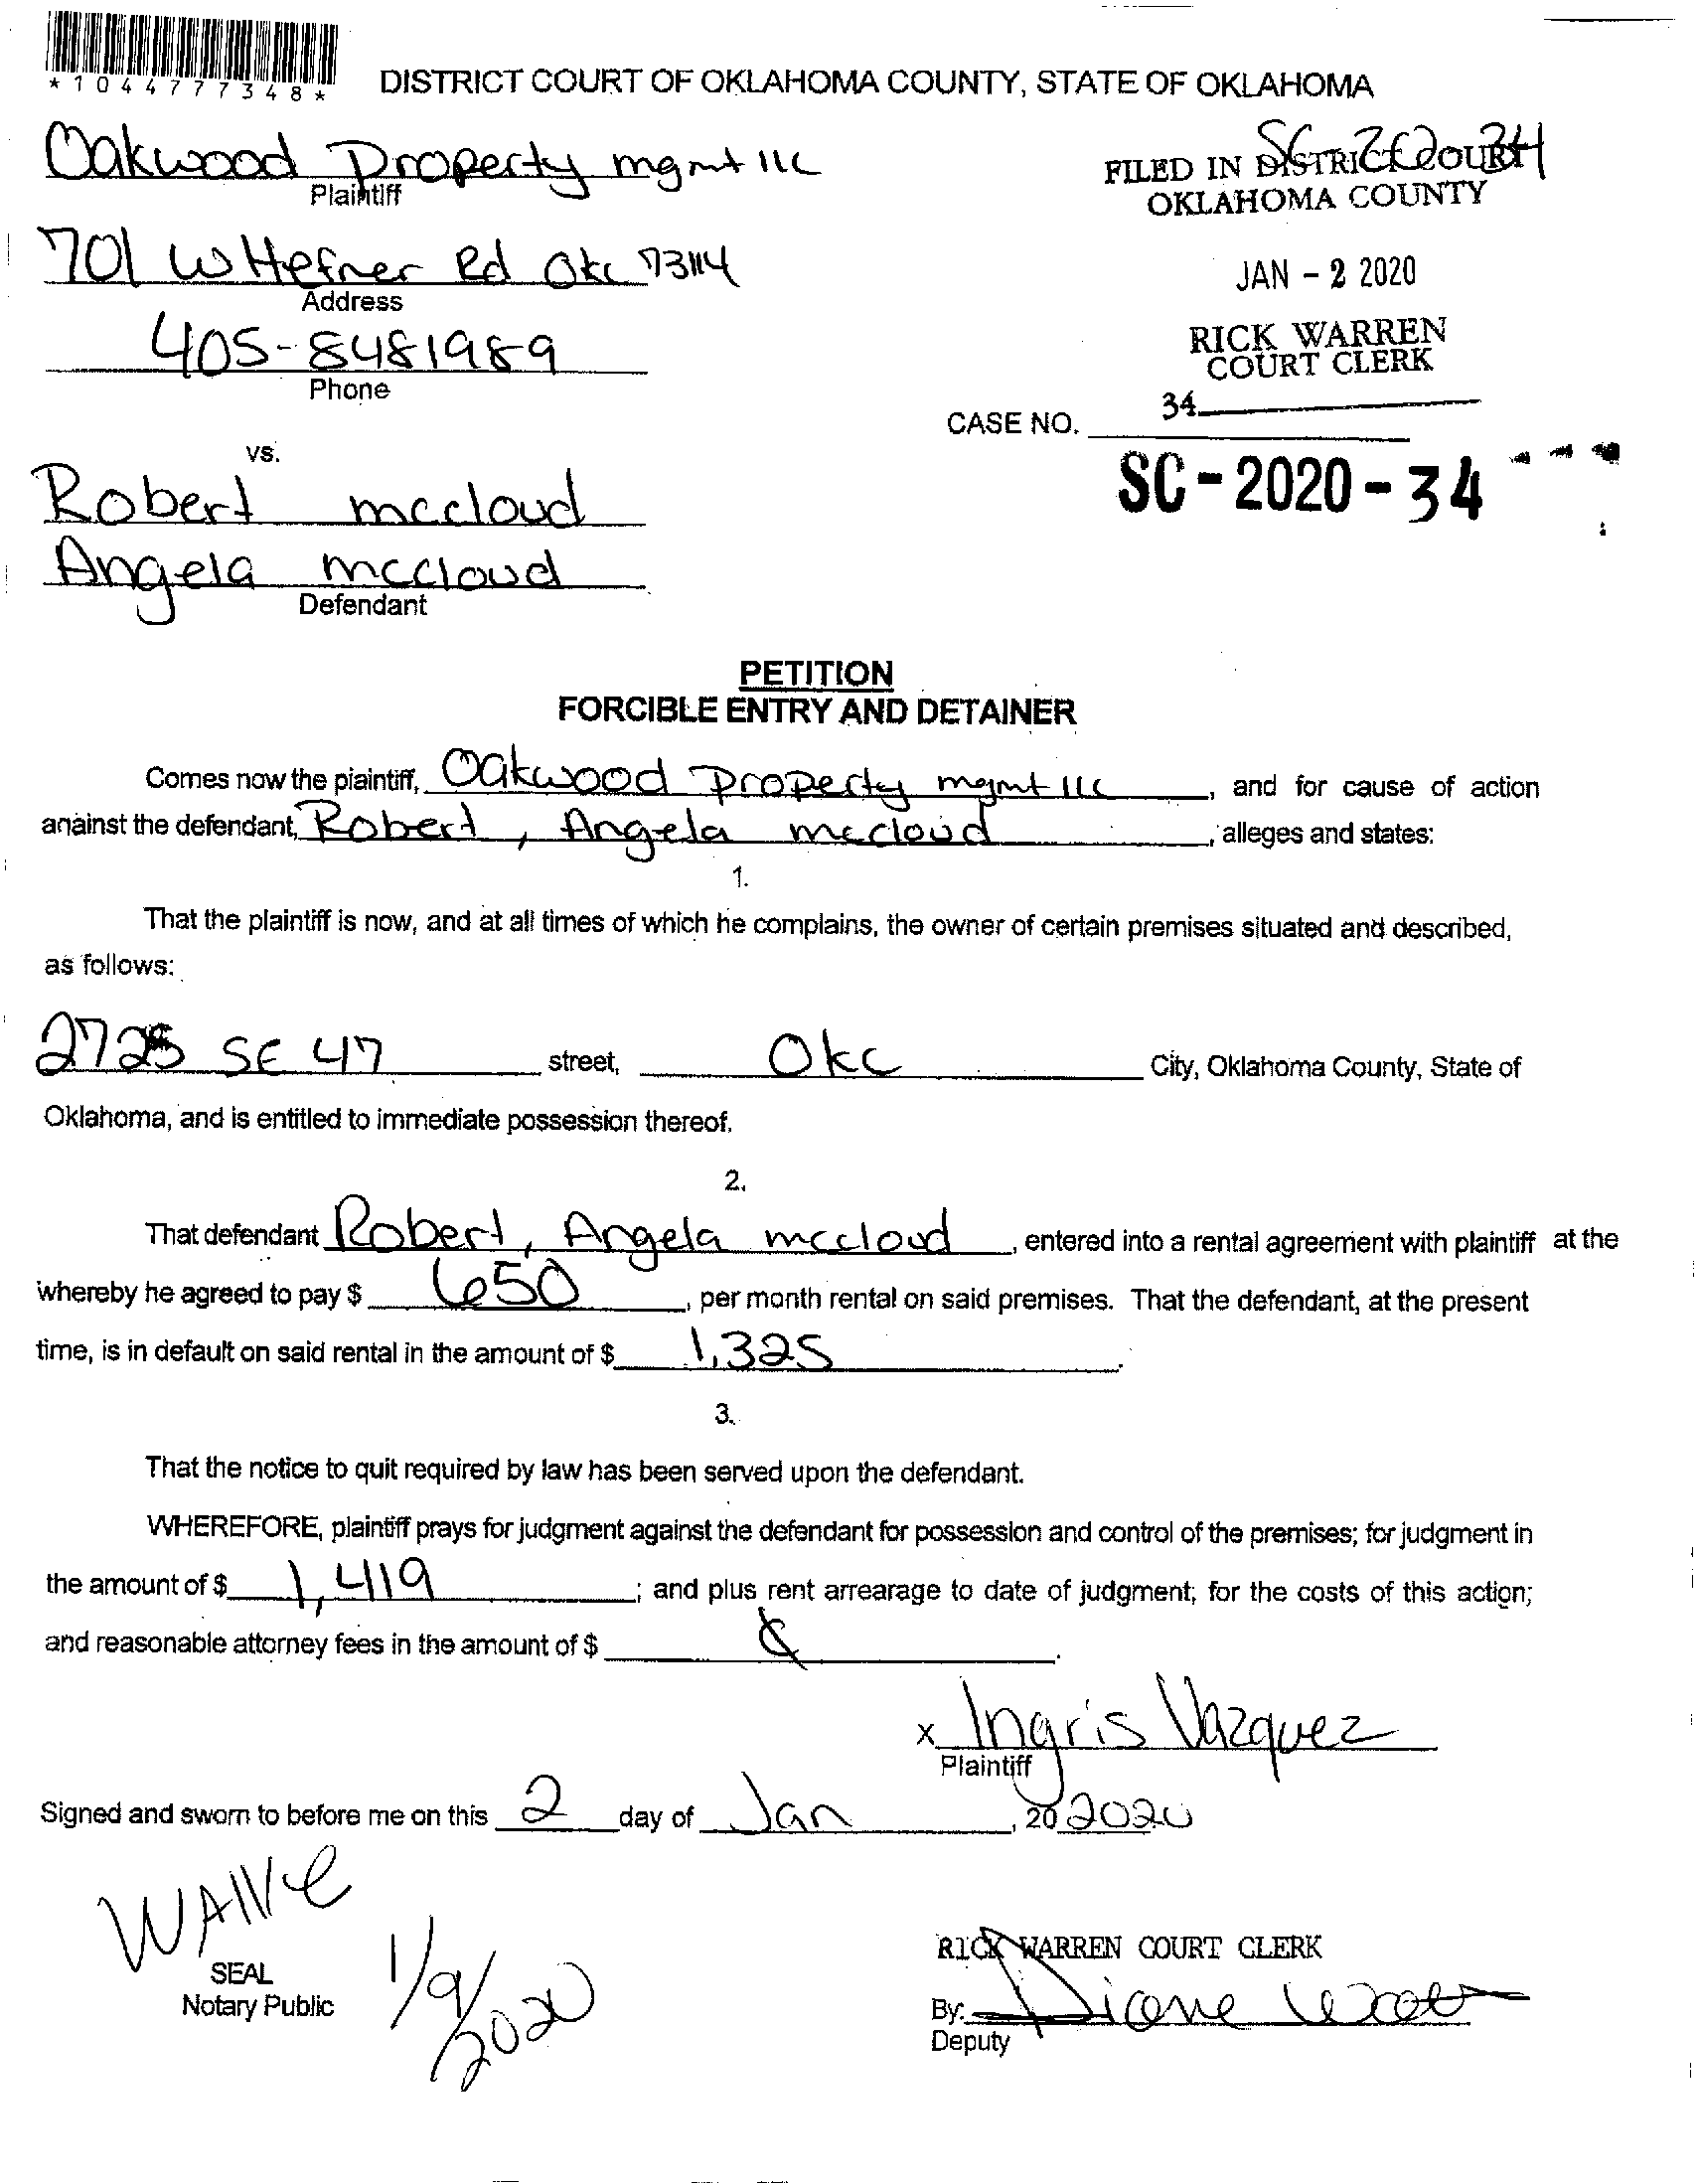 *1044777348*
DISTRICT COURT OF OKLAHOMA COUNTY, STATE OF OKLAHOMA
Oakwood Property mgmt llc
Plaintiff
SC-2020-34
FILED IN DISTRICT COURT
OKLAHOMA COUNTY
701 W Hefner Rd Okc 73114
Address
JAN - 2 2020
405-8481989
Phone
RICK WARREN
COURT CLERK
34
CASE NO.
SC - 2020 - 34
vs.
Robert mccloud
Angela mccloud
Defendant
PETITION
FORCIBLE ENTRY AND DETAINER
Comes now the plaintiff, Oakwood Property mgmt llc, and for cause of action
against the defendant, Robert, Angela mccloud, alleges and states:
1.
That the plaintiff is now, and at all times of which he complains, the owner of certain premises situated and described,
as follows:
SE 47 street, Okc City, Oklahoma County, State of
Oklahoma, and is entitled to immediate possession thereof.
2.
That defendant Robert, Angela mccloud, entered into a rental agreement with plaintiff at the
whereby he agreed to pay $ 650, per month rental on said premises. That the defendant, at the present
time, is in default on said rental in the amount of $ 1,325.
3.
That the notice to quit required by law has been served upon the defendant.
WHEREFORE, plaintiff prays for judgment against the defendant for possession and control of the premises; for judgment in
the amount of $ 1,419; and plus rent arrearage to date of judgment; for the costs of this action;
and reasonable attorney fees in the amount of $
x Ingris Vazquez
Plaintiff
Signed and sworn to before me on this 2 day of Jan, 20 2020
WAIVE
1/9/2020
SEAL
Notary Public
RICK WARREN COURT CLERK
By: Diane
Deputy